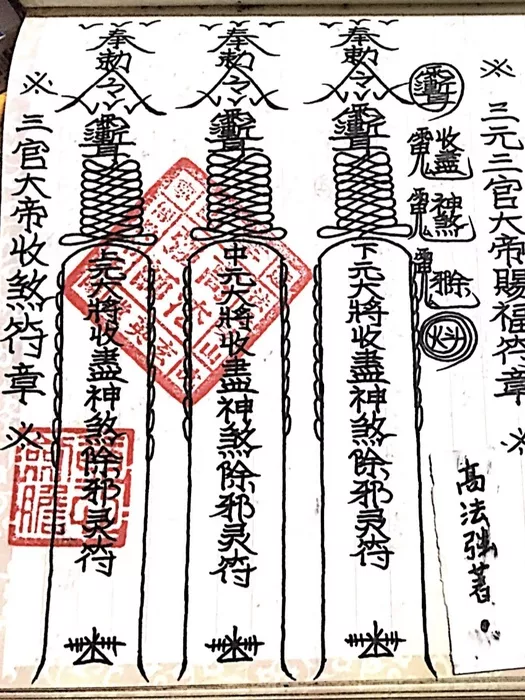 ※ 三元三官大帝賜福符章 ※
收盡
神煞
奉勅令
下元大將收盡神煞除邪灵符
奉勅令
中元大將收盡神煞除邪灵符
奉勅令
上元大將收盡神煞除邪灵符
※ 三官大帝收煞符章 ※
高法強著。